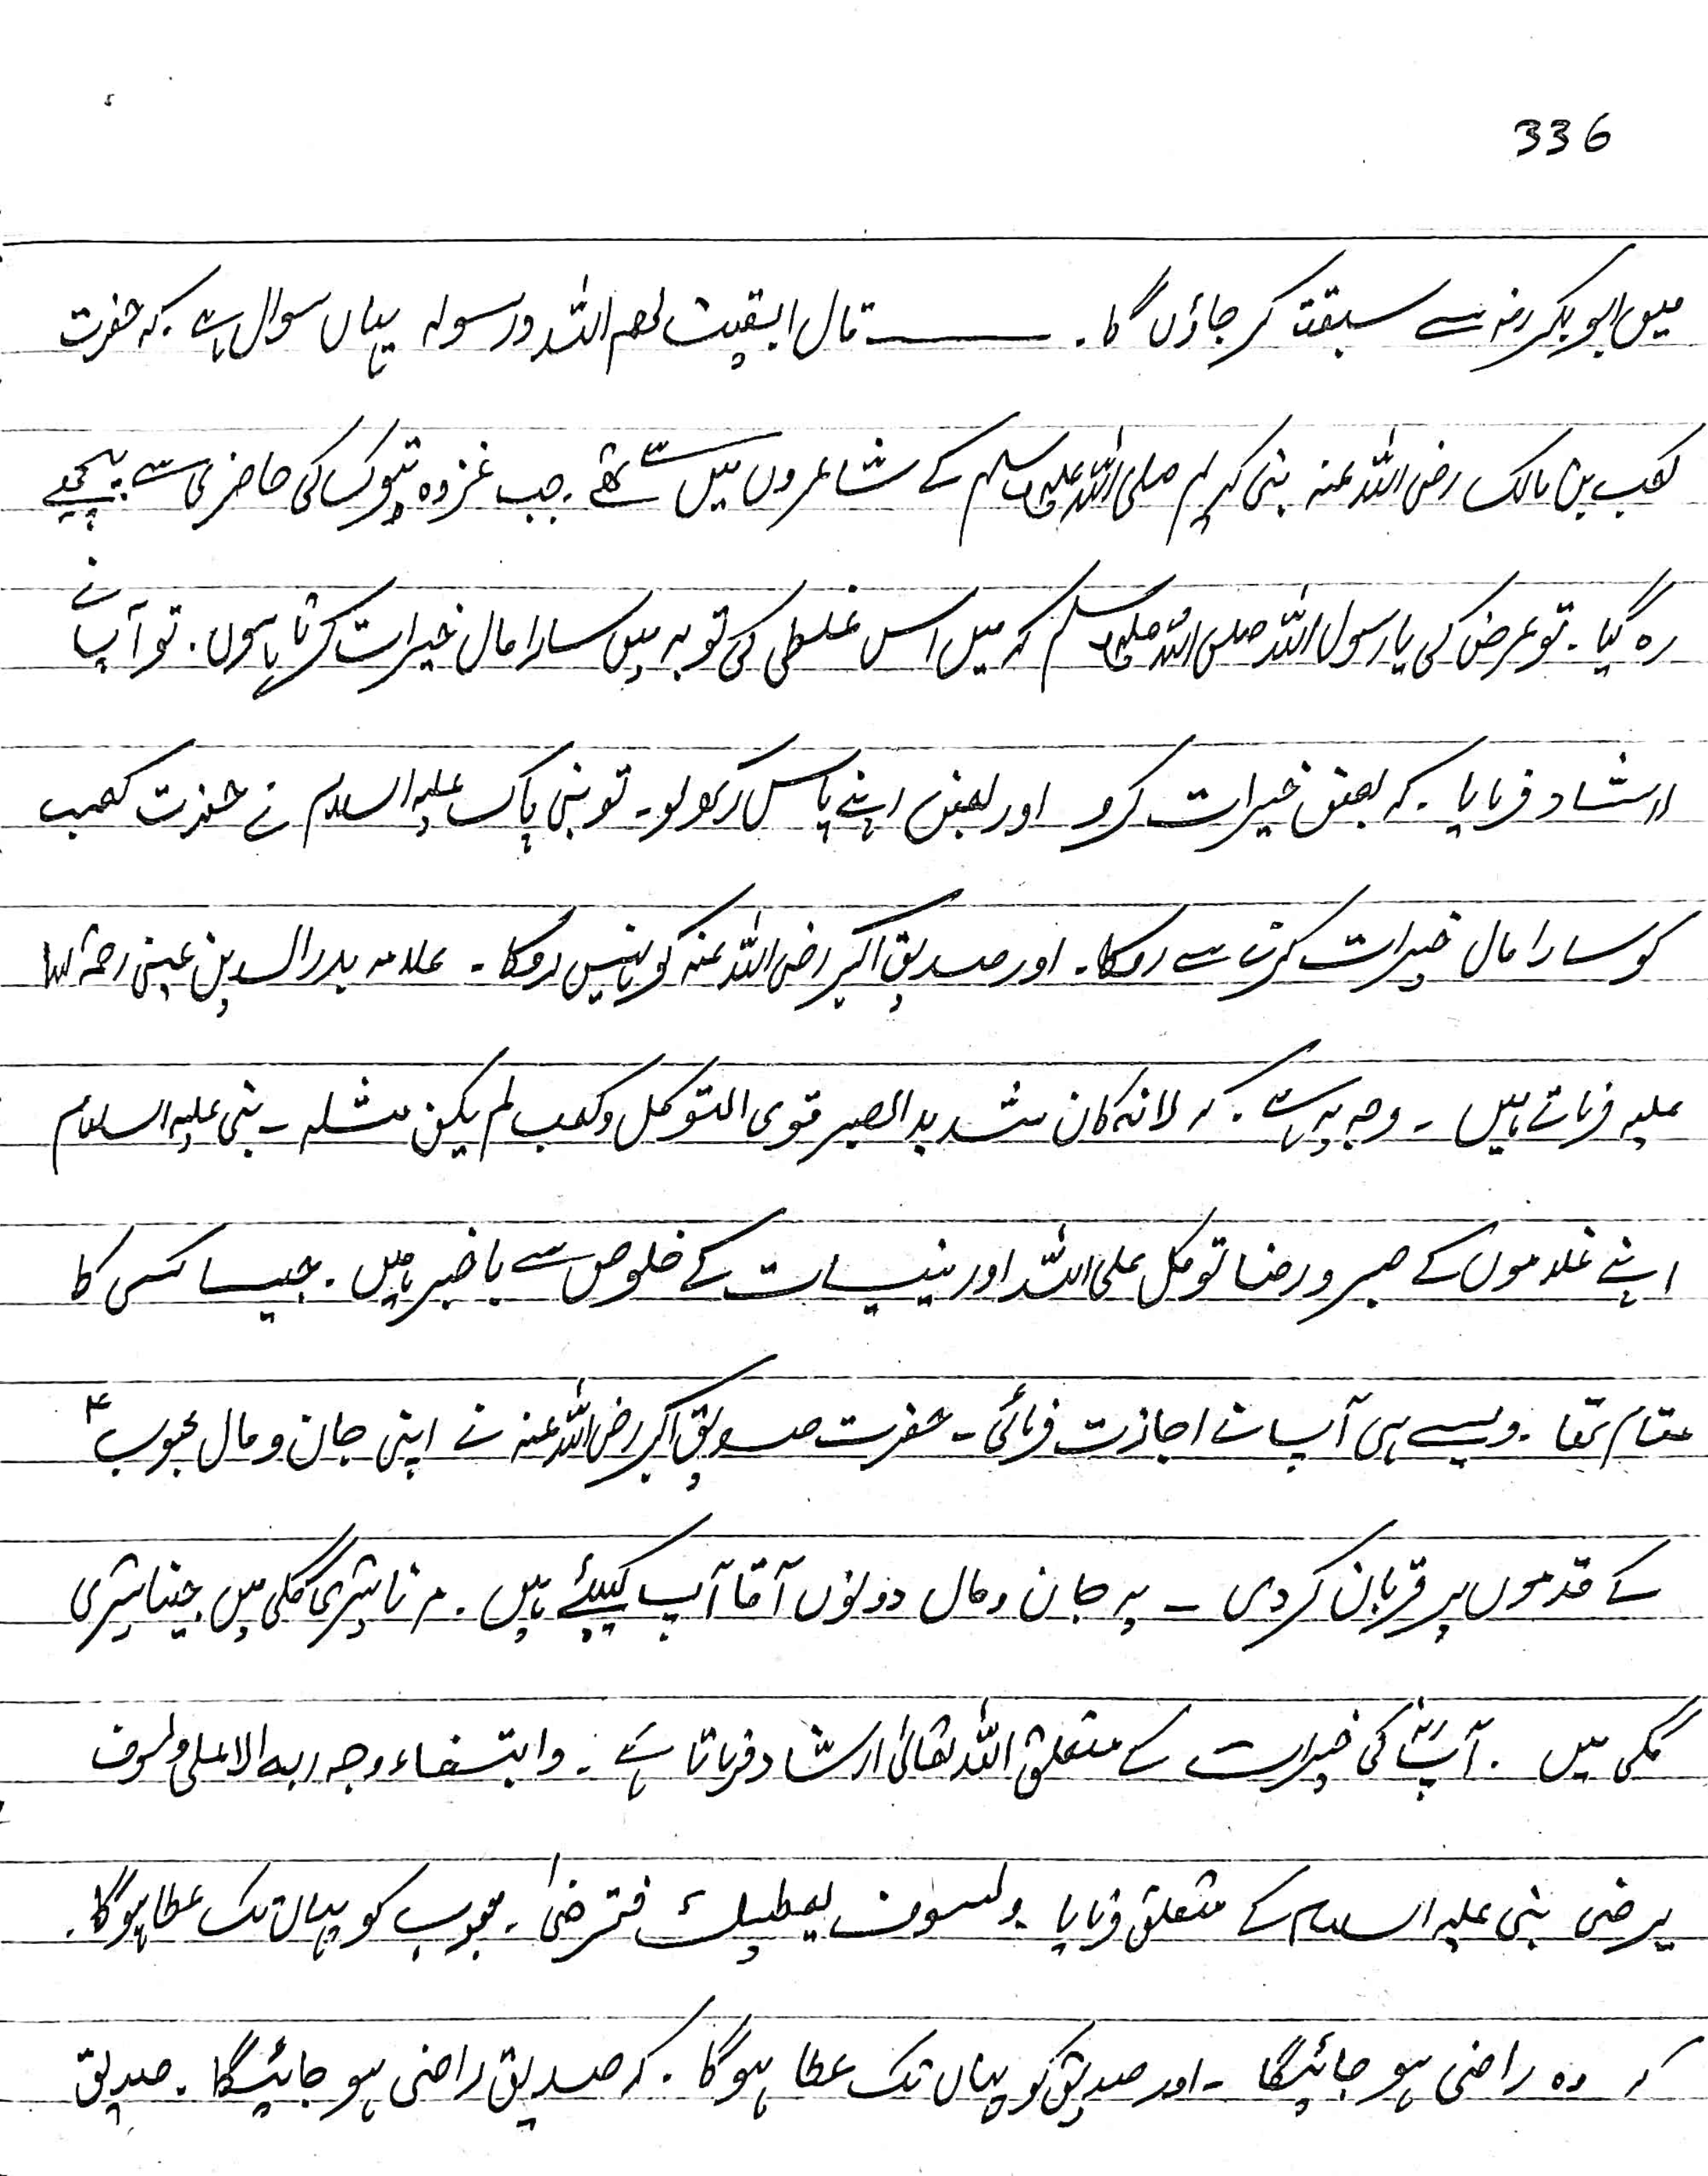 336
میں ابو بکر رضہ سے سبقت کر جاؤں گا۔ ــــــــ قال ابقیت لھم اللہ ورسولہ یہاں سوال ہے ۔ کہ حضرت
کعب بن مالک رضی اللہ عنہ نبی کریم صلی اللہ علیہ وسلم کے شاعروں میں سے تھے ۔ جب غزوہ تبوک کی حاضری سے پیچھے
رہ گیا ۔ تو عرض کی یا رسول اللہ صلی اللہ علیہ وسلم کہ میں اس غلطی کی توبہ میں سارا مال خیرات کرتا ہوں ۔ تو آپ نے
ارشاد فرمایا ۔ کہ بعض خیرات کرو اور بعض اپنے پاس رکھ لو ۔ تو نبی پاک علیہ السلام نے حضرت کعب
کو سارا مال خیرات کرنے سے روکا ۔ اور صدیق اکبر رضی اللہ عنہ کو نہیں روکا ۔ علامہ بدر الدین عینی رحمۃ اللہ
علیہ فرماتے ہیں ۔ وجہ یہ ہے ۔ کہ لانہ کان شدید الصبر قوی التوکل وکعب لم یکن مثلہ ۔ نبی علیہ السلام
اپنے غلاموں کے صبر و رضا توکل علی اللہ اور نییات کے خلوص سے باخبر ہیں ۔ جیسا کسی کا
مقام تھا ۔ ویسے ہی آپ نے اجازت فرمائی ۔ حضرت صدیق اکبر رضی اللہ عنہ نے اپنی جان و مال محبوب
کے قدموں پر قربان کر دی ۔ یہ جان و مال دونوں آقا آپ کیلئے ہیں ۔ مرنا تیری گلی میں جینا تیری
گلی میں ۔ آپ رضہ کی خیرات کے متعلق اللہ تعالیٰ ارشاد فرماتا ہے ۔ وابتغاء وجہ ربہ الاعلی ولسوف
یرضی نبی علیہ السلام کے متعلق فرمایا ۔ ولسوف یعطیک فترضیٰ ۔ محبوب کو یہاں تک عطا ہوگا ۔
کہ وہ راضی ہو جائیگا ۔ اور صدیق کو یہاں تک عطا ہوگا ۔ کہ صدیق راضی ہو جائیگا ۔ صدیق